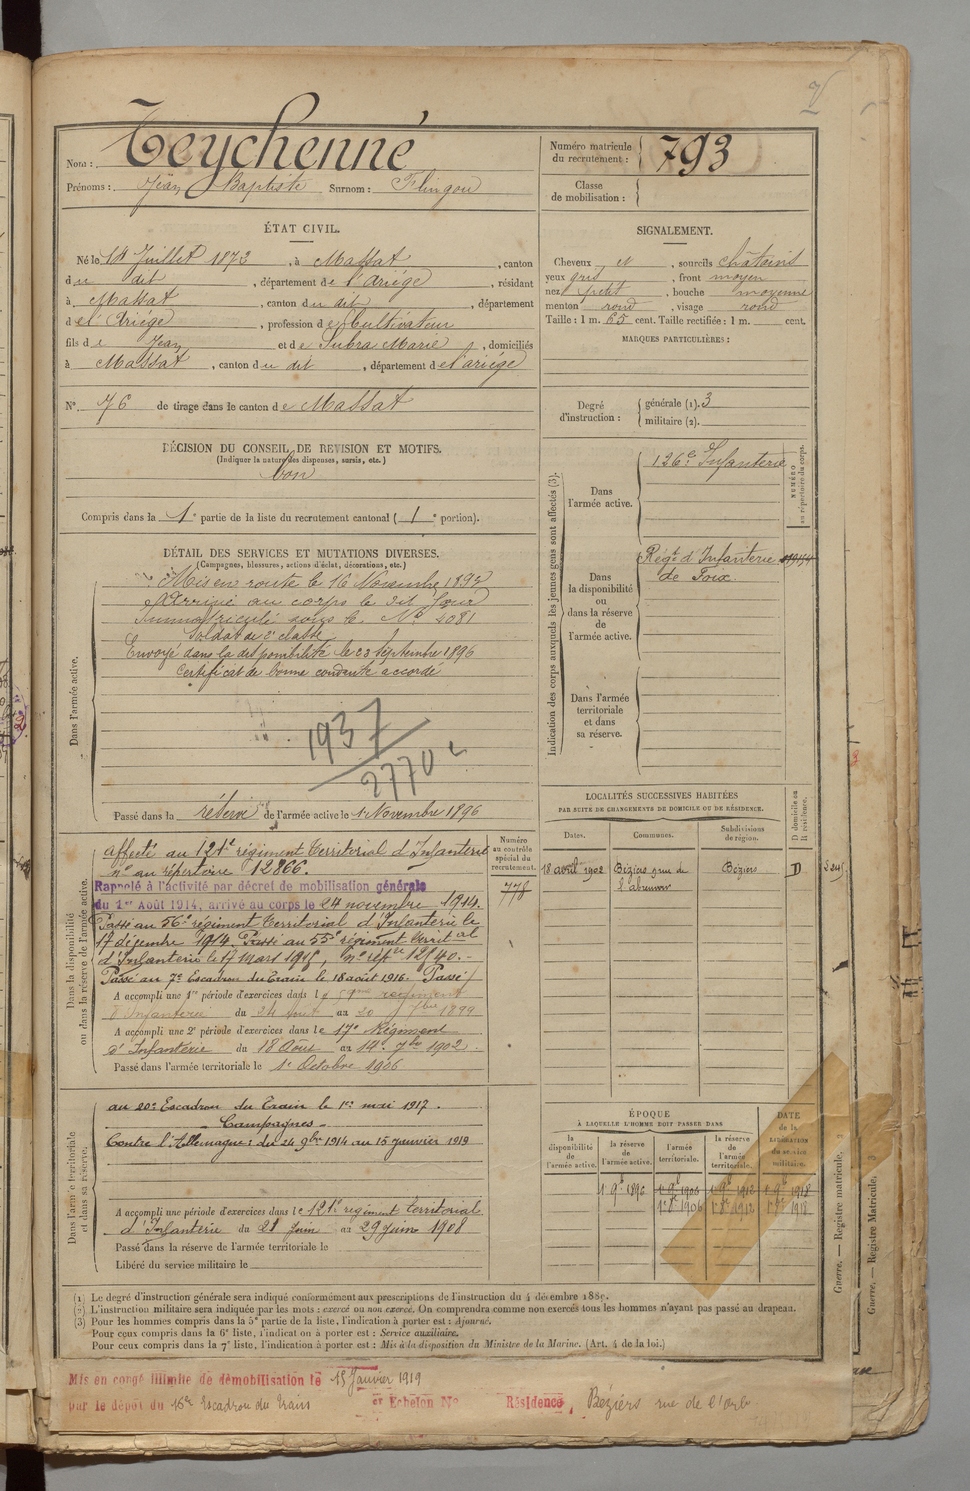 Nom : Teychenné
Prénoms : Jean Baptiste Surnom : Flingou
Numéro matricule du recrutement : 793
Classe de mobilisation :
ÉTAT CIVIL.
Né le 14 Juillet 1873, à Massat, canton
du dit, département de l'Ariége, résidant
à Massat, canton du dit, département
de l'Ariége, profession de Cultivateur
fils de Jean et de Subra Marie, domiciliés
à Massat, canton du dit, département de l'ariége
N° 76 de tirage dans le canton de Massat
DÉCISION DU CONSEIL DE REVISION ET MOTIFS.
(Indiquer la nature des dispenses, sursis, etc.)
bon
Compris dans la 1e partie de la liste du recrutement cantonal ( 1e portion).
SIGNALEMENT.
Cheveux et, sourcils châtains
yeux gris, front moyen
nez petit, bouche moyenne
menton rond, visage rond
Taille : 1 m. 65 cent. Taille rectifiée : 1 m. cent.
MARQUES PARTICULIÈRES :
Degré d'instruction : générale (1). 3
militaire (2).
DÉTAIL DES SERVICES ET MUTATIONS DIVERSES.
(Campagnes, blessures, actions d'éclat, décorations, etc.)
Dans l'armée active.
Mis en route le 16 Novembre 1894
Arrivé au corps le dit Jour
Immatriculé sous le N° 4081
Soldat de 2e classe
Envoyé dans la disponibilité le 23 septembre 1896
Certificat de bonne conduite accordé
1937
2770
Passé dans la réserve de l'armée active le 1er Novembre 1896
Indication des corps auxquels les jeunes gens sont affectés (3).
Dans l'armée active.
126e Infanterie
NUMÉRO au répertoire du corps.
Dans la disponibilité ou dans la réserve de l'armée active.
Régt d'Infanterie
de Foix
Dans l'armée territoriale et dans sa réserve.
LOCALITÉS SUCCESSIVES HABITÉES
PAR SUITE DE CHANGEMENTS DE DOMICILE OU DE RÉSIDENCE.
Dates. Communes. Subdivisions de région. D domicile ou R résidence.
18 avril 1902 Béziers rue de Béziers D
l'abreuvoir
Dans la disponibilité ou dans la réserve de l'armée active.
Numéro au contrôle spécial du recrutement.
778
affecté au 121e régiment territorial d'Infanterie
n° au répertoire 12866.
Rappelé à l'activité par décret de mobilisation générale
du 1er Août 1914, arrivé au corps le 24 novembre 1914.
Passé au 56e régiment territorial d'Infanterie le
17 décembre 1914. Passé au 55e régiment territal
d'Infanterie le 17 mars 1915, n° rép.re 12540.-
Passé au 7e Escadron du Train le 18 août 1916. Passé
A accompli une 1re période d'exercices dans le 59me régiment
d'Infanterie du 24 Aout au 20 7bre 1899
A accompli une 2e période d'exercices dans le 17e Régiment
d'Infanterie du 18 Août au 14 7bre 1902.
Passé dans l'armée territoriale le 1er Octobre 1906
Dans l'armée territoriale et dans sa réserve.
au 20e Escadron du Train le 1er mai 1917.
Campagnes
Contre l'Allemagne : du 24 9bre 1914 au 15 janvier 1919
A accompli une période d'exercices dans le 121e régiment territorial
d'Infanterie du 21 Juin au 29 Juin 1908
Passé dans la réserve de l'armée territoriale le
Libéré du service militaire le
ÉPOQUE
À LAQUELLE L'HOMME DOIT PASSER DANS
DATE DE LA LIBÉRATION du service militaire.
la disponibilité de l'armée active. la réserve de l'armée active. l'armée territoriale. la réserve de l'armée territoriale.
1er 9bre 1896 1er 9bre 1906 1er 9bre 1912 1er 9bre 1918
1er 8bre 1906 1er 8bre 1912 1er 8bre 1918
(1) Le degré d'instruction générale sera indiqué conformément aux prescriptions de l'instruction du 4 décembre 1889.
(2) L'instruction militaire sera indiquée par les mots : exercé ou non exercé. On comprendra comme non exercés tous les hommes n'ayant pas passé au drapeau.
(3) Pour les hommes compris dans la 5e partie de la liste, l'indication à porter est : Ajourné.
Pour ceux compris dans la 6e liste, l'indication à porter est : Service auxiliaire.
Pour ceux compris dans la 7e liste, l'indication à porter est : Mis à la disposition du Ministre de la Marine. (Art. 4 de la loi.)
Mis en congé illimité de démobilisation le 15 Janvier 1919
par le dépôt du 16e Escadron du Train er Echelon N° Résidence, Béziers rue de l'Orb
Guerre. — Registre matricule.
Guerre. — Registre Matricule. 3